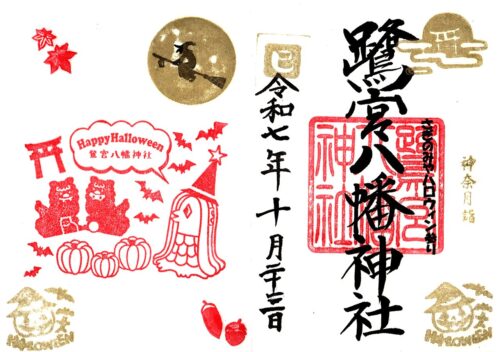 神奈月詣
鷺宮八幡神社
さぎのみやハロウィン祭り
令和七年十月二十三日
Happy Halloween
鷺宮八幡神社
HALLOWEEN
HALLOWEEN